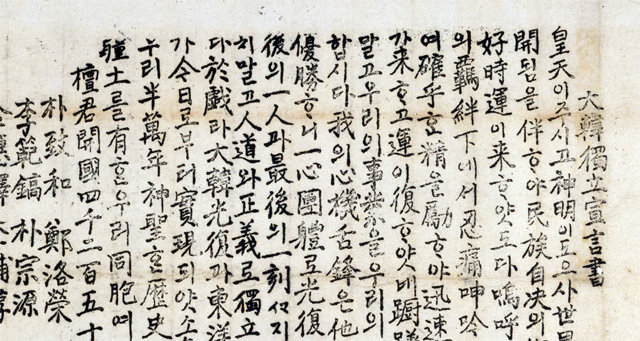 大韓獨立宣言書
皇天이주시고神明이도으사世
開됨을伴ᄒᆞ야民族自决의
好時運이来ᄒᆞ얏도다嗚呼
의羈絆下에서忍痛呻吟
여確乎ᄒᆞᆫ精을勵ᄒᆞ야迅速
가来ᄒᆞ고運이復ᄒᆞ얏네躊躇
말고우리의事業을우리의
합시다我의心機舌鋒은他
優勝ᄒᆞ니一心團體로光復
後의一人과最後의一刻ᄭᅡ지
치말고人道와正義로獨立
다於戱라大韓光復과東洋
가今日로부터實現되얏소
우리半萬年神聖ᄒᆞᆫ歷史
疆土를有ᄒᆞᆫ우리同胞여
檀君開國四千二百五十
朴致和 鄭洛榮
李範鎬 朴宗源